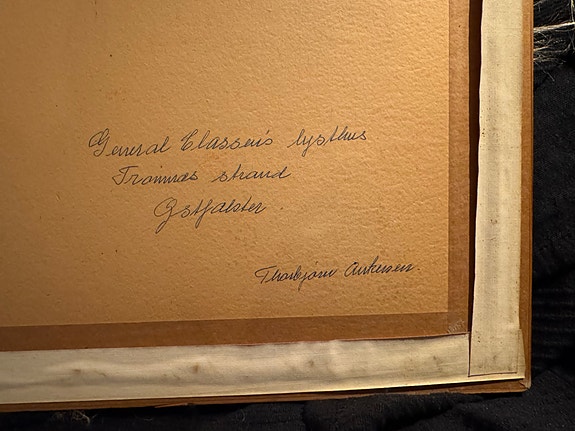 General Classen's lysthus
Tromnæs strand
Østfalster.
Thorbjørn Ankersen.